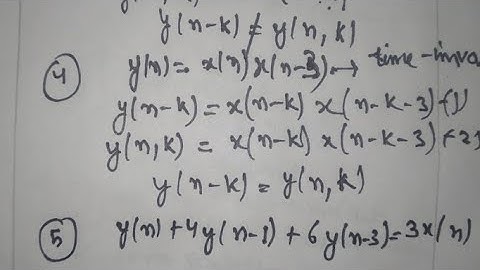 y(n-k) ≠ y(n,k)
④ y(n) = x(n) x(n-3) → time-inva
y(n-k) = x(n-k) x(n-k-3) -(1)
y(n,k) = x(n-k) x(n-k-3) -(2)
y(n-k) = y(n,k)
⑤ y(n) + 4y(n-1) + 6y(n-3) = 3x(n)